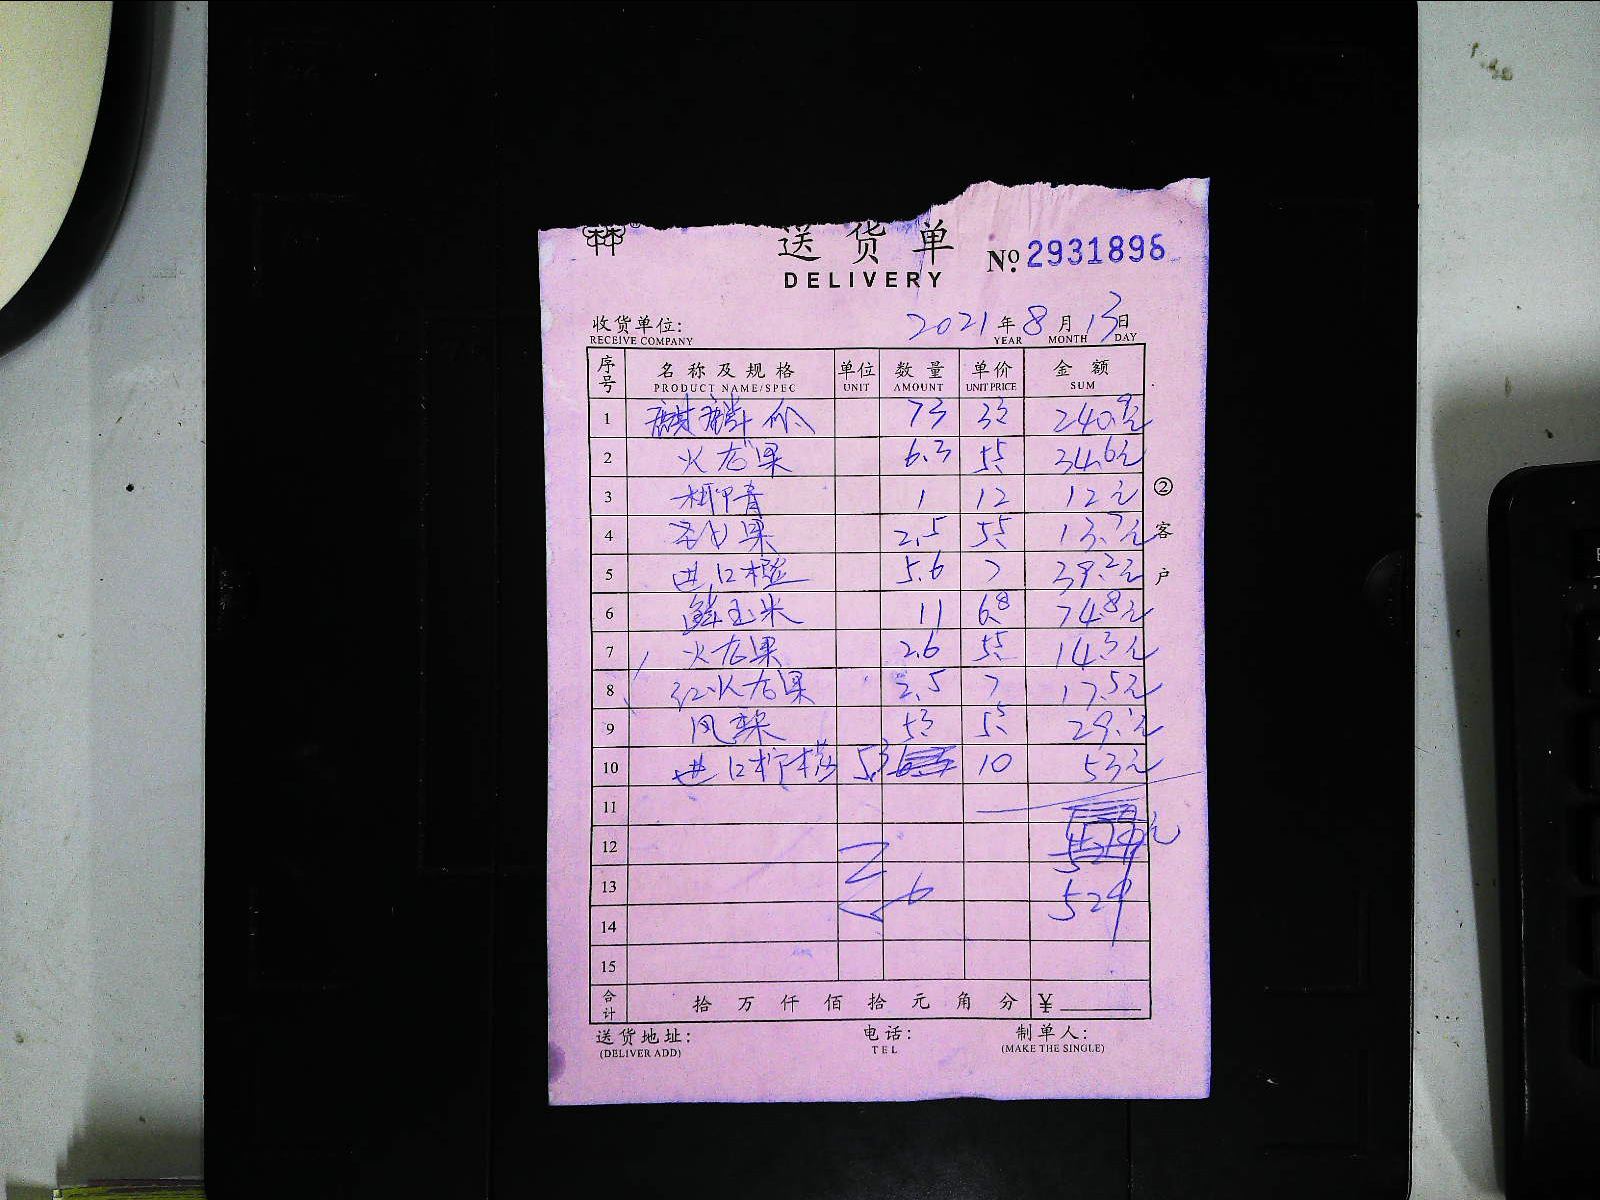 送货单
DELIVERY
No. 2931896
收货单位:
RECEIVE COMPANY
2021年8月13日
YEAR MONTH DAY
序号 名称及规格 单位 数量 单价 金额
PRODUCT NAME/SPEC UNIT AMOUNT UNIT PRICE SUM
1 麒麟瓜 73 3.3 240.9元
2 火龙果 6.3 5.5 34.6元
3 椰青 1 12 12元
4 2.5 5.5 13.7元
5 进口橙 5.6 7 39.2元
6 鲜玉米 11 6.8 74.8元
7 火龙果 2.6 5.5 14.3元
8 红火龙果 2.5 7 17.5元
9 风梨 5.3 5.5 29.1元
10 进口柠檬 5.3 10 53元
11
12
13 529
14
15
合计 拾万仟佰拾元角分 ¥
②客户
送货地址: 电话: 制单人:
(DELIVER ADD) TEL (MAKE THE SINGLE)